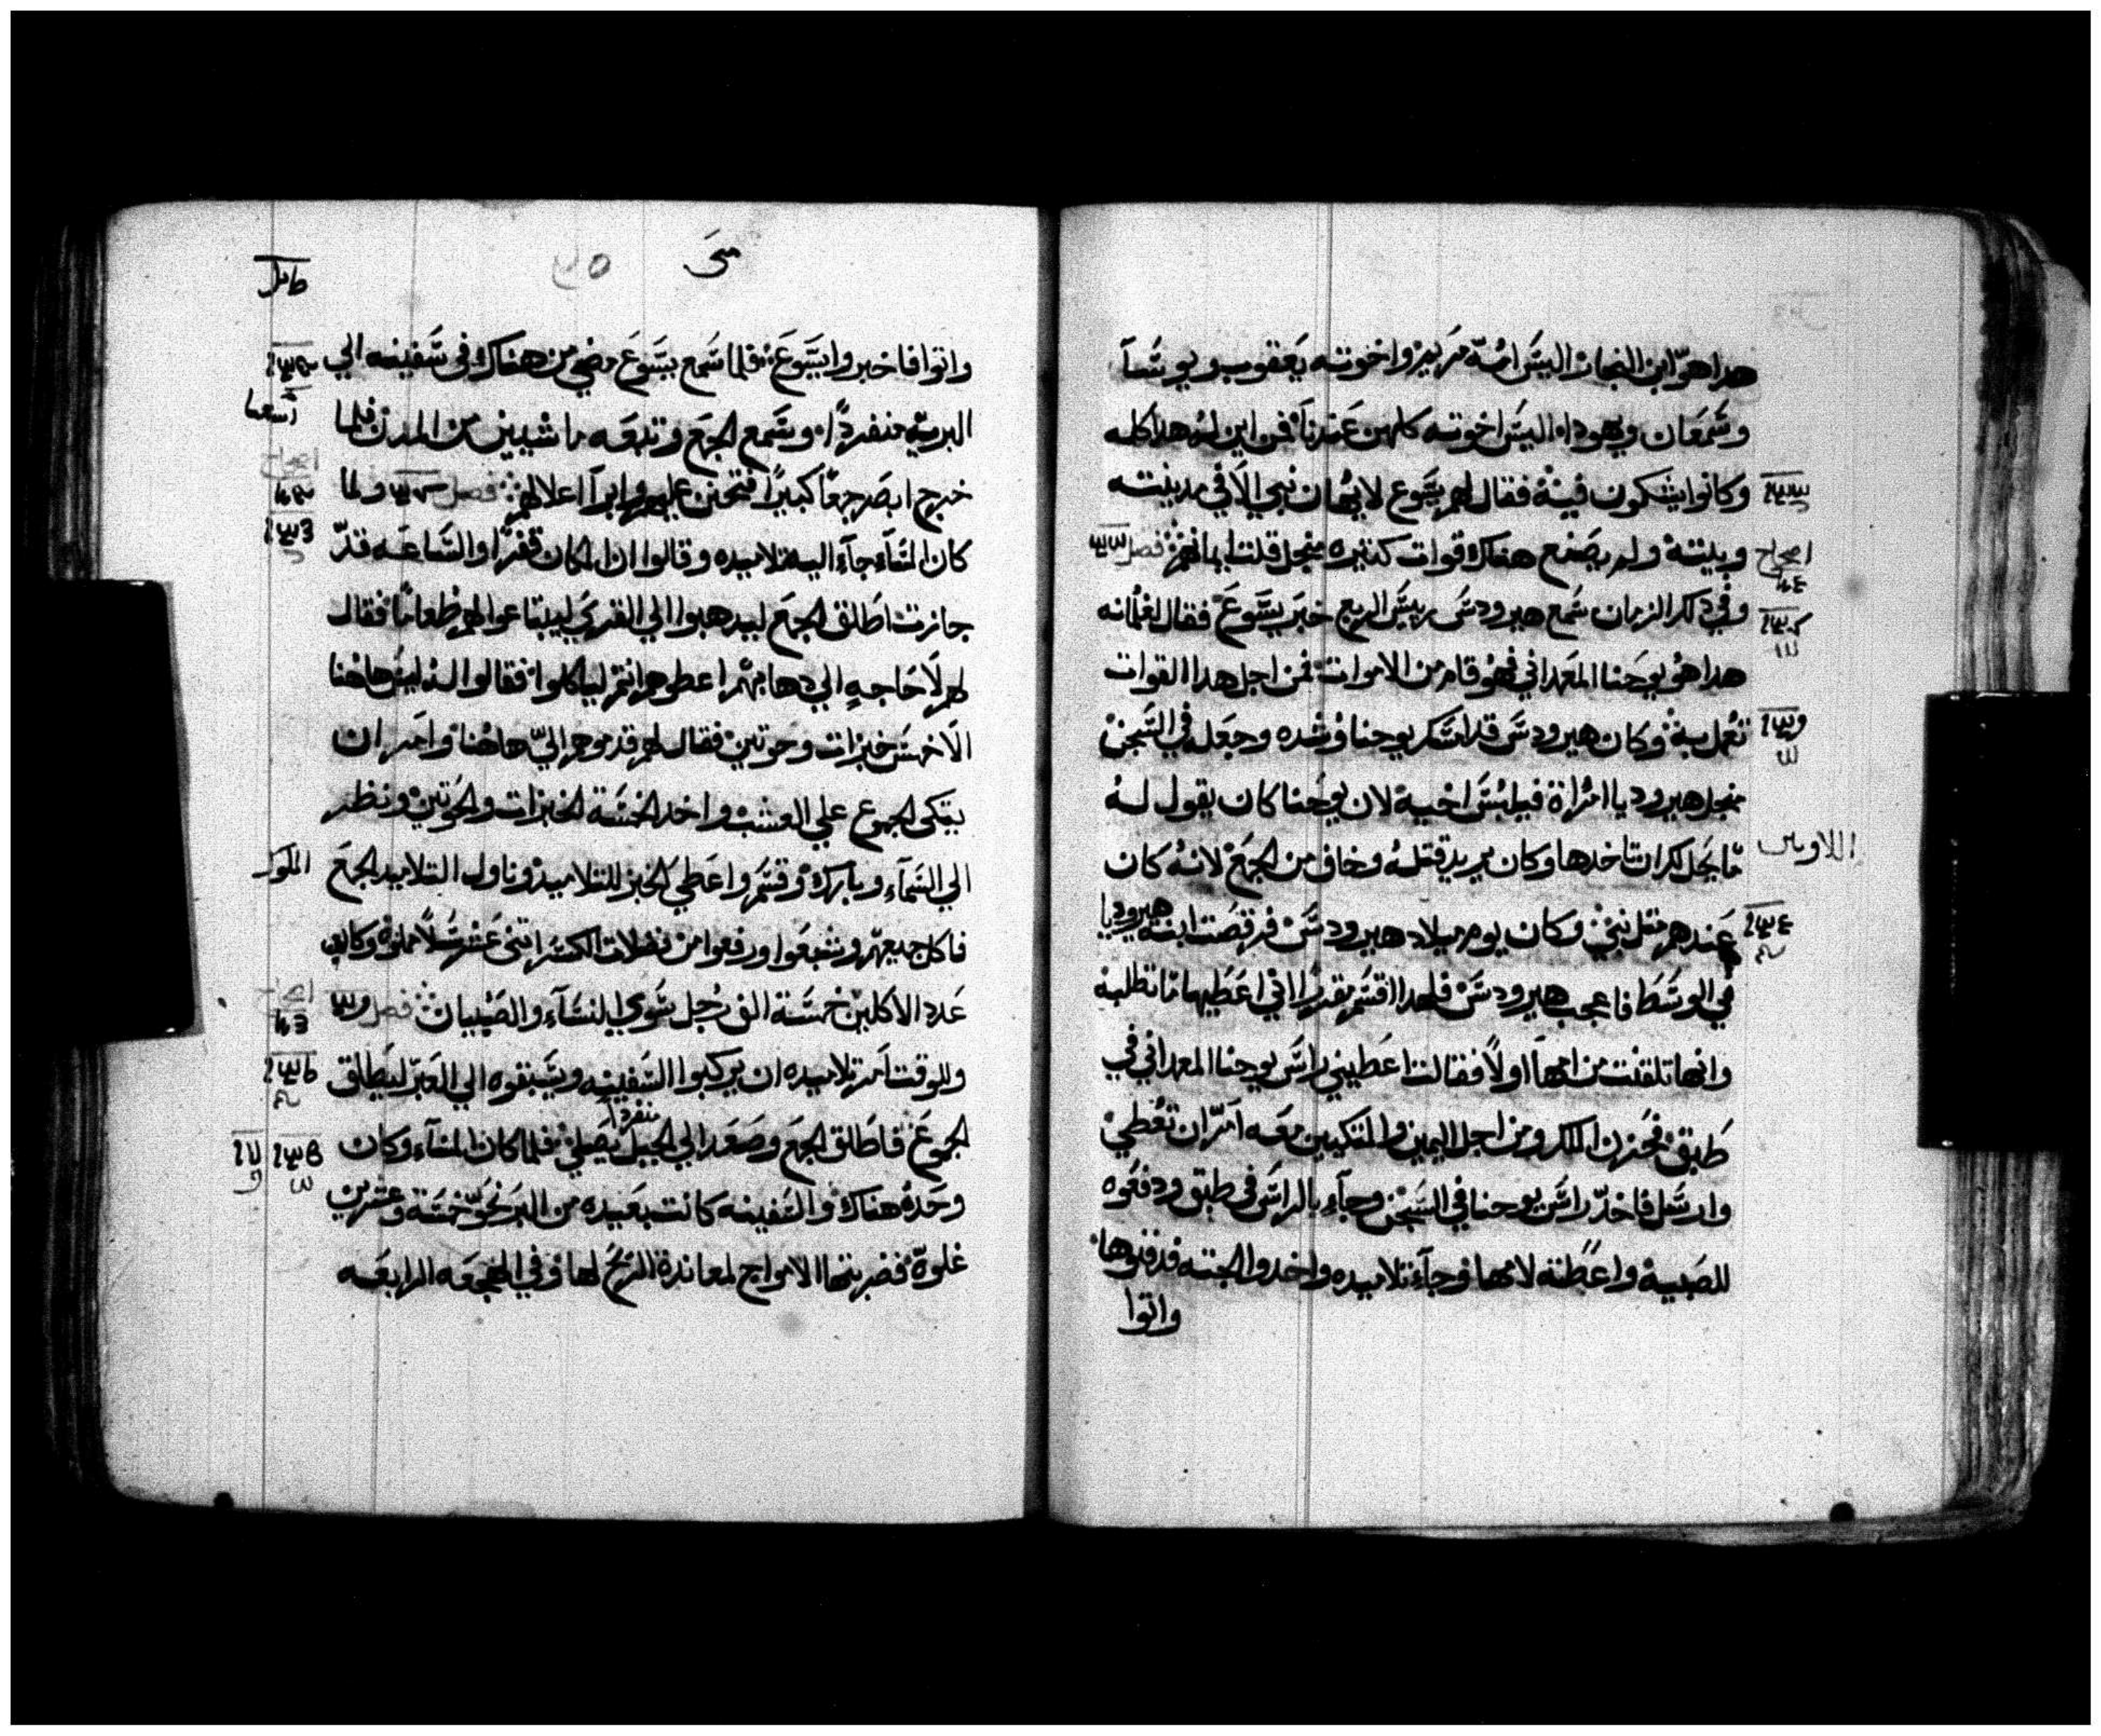 هدا هو ابن النجار اليس امه مريم واخوته يعقوب ويوسا
وسمعان ويهودا اليس اخوته كلهن عندنا فمن اين له هدا كله
وكانوا يشكون فيه فقال لهم يسوع لا يهان نبي الا في مدينته
وبيته ولم يصنع هناك قوات كتيره منجل قلت ايمانهم فصل
وفي دلك الزمان سمع هيرودس رييس الربع خبر يسوع فقال لغلمانه
هدا هو يوحنا المعمداني فهو قام من الاموات فمن اجل هدا القوات
تعمل به وكان هيرودس قد امسك يوحنا وشده وجعله في السجن
منجل هيروديا امراة فيلبس اخيه لان يوحنا كان يقول له
ما يحل لك ان تاخدها وكان يريد قتله وخاف من الجمع لانه كان
عندهم متل نبي وكان يوم ميلاد هيرودس فرقصت ابنه هيروديا
في الوسط فاعجب هيرودس فلهدا اقسم بقدر انني اعطيها ما تطلبه
وانها تلقنت من امها اولا فقالت اعطيني راس يوحنا المعمداني في
طبق فحزن الملك ومن اجل اليمين والمتكيين معه امر ان تعطي
وارسل فاخد راس يوحنا في السجن وجاء بالراس في طبق ودفعوه
للصبيه واعطته لامها وجاء تلاميده واخدوا الجته فدفنوها
واتوا
متى
واتوا فاخبروا يسوع فلما سمع يسوع مضى من هناك في سفينه الي
البريه منفردا وسمع الجمع وتبعه ماشيين من المدن فلما
خرج ابصر جمعا كبيرا فتحنن عليهم وابرا اعلالهم فصل ولما
كان المساء جاء اليه تلاميده وقالوا ان المكان قفرا والساعه قد
جازت اطلق الجمع ليدهبوا الي القرى ليبتاعوا لهم طعاما فقال
لهم لا حاجه الي دهابهم اعطوهم انتم لياكلوا فقالوا له ليس هاهنا
الا خمس خبزات وحوتين فقال لهم قدموهم الي هاهنا وامر ان
يتكى الجموع علي العشب واخد الخمسة الخبزات والحوتين ونظر
الي السماء وبارك وقسم واعطي الخبز للتلاميد وناول التلاميد الجمع
فاكل جميعهم وشبعوا ورفعوا من فضلات الكسر اتنى عشر سلا مملوه وكان
عدد الاكلين خمسة الف رجل سوي النساء والصبيان فصل
وللوقت امر تلاميده ان يركبوا السفينه ويسبقوه الي العبر ليطلق
الجموع فاطلق الجمع وصعد الي الجبل منفردا يصلي فلما كان المساء وكان
وحده هناك والسفينه كانت بعيده من البر نحو خمسة وعشرين
غلوة فضربتها الامواج لمعاندة الريح لها وفي الهجعه الرابعه